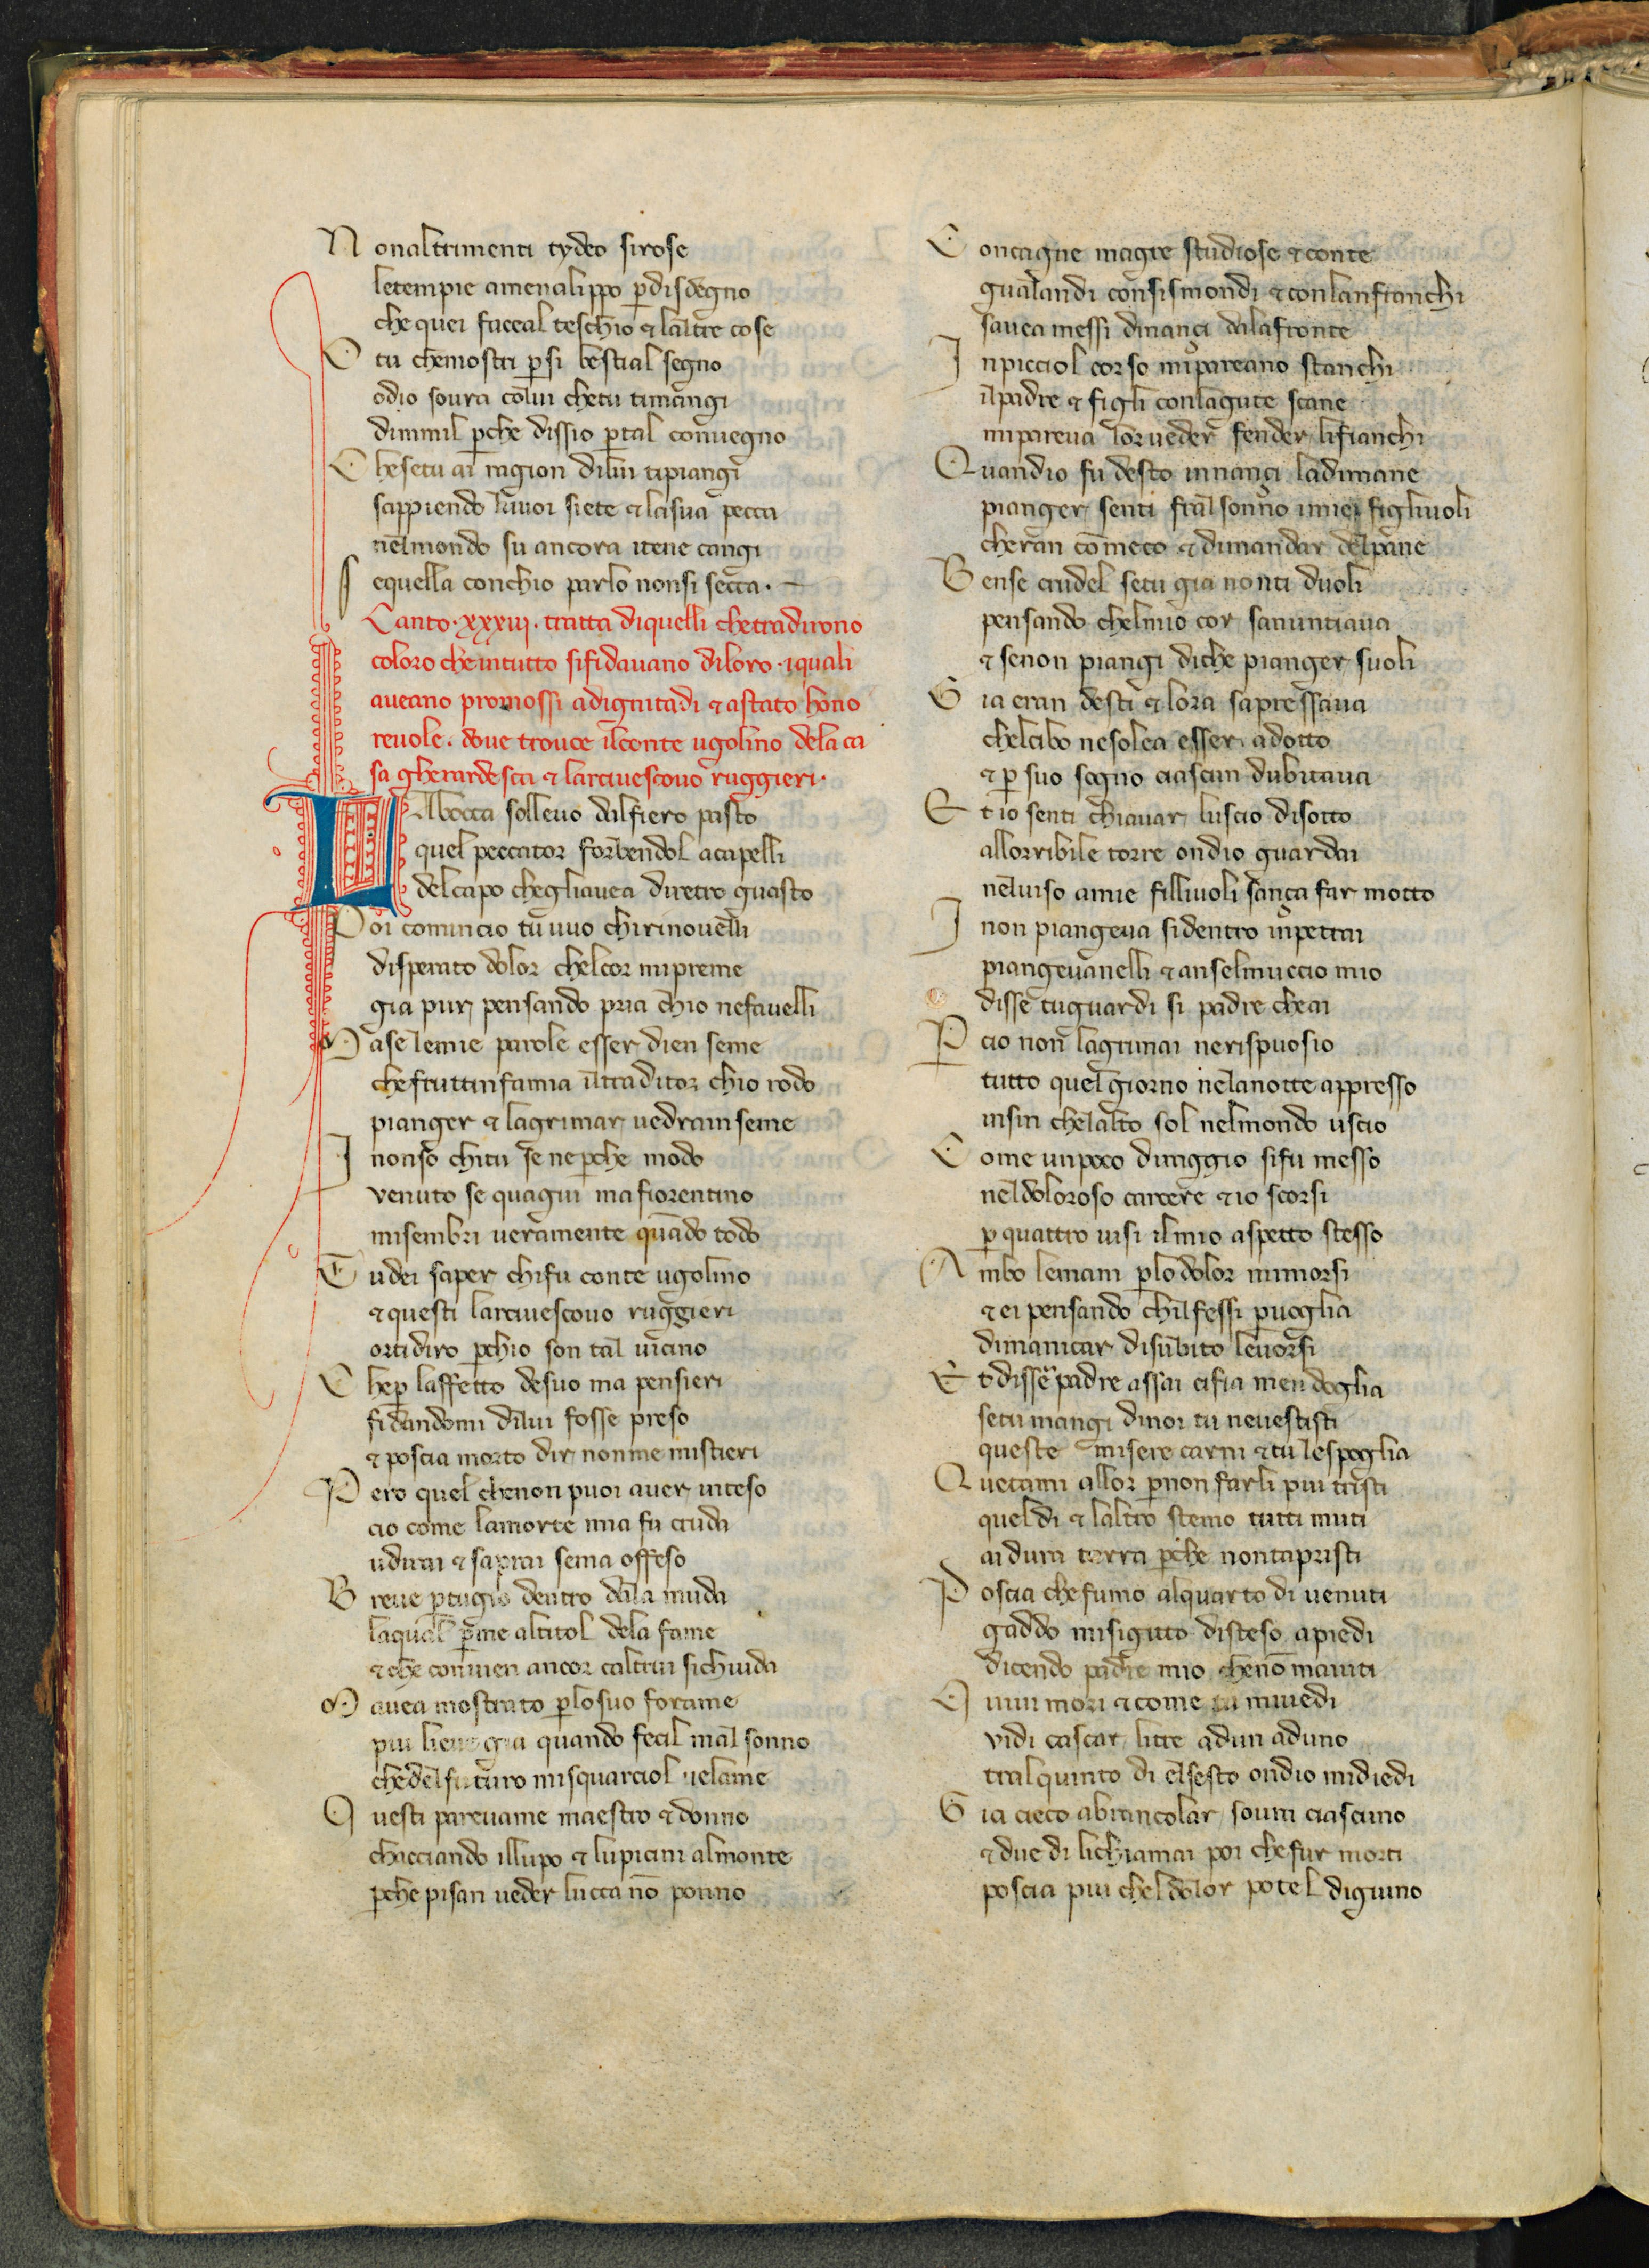 Nonaltrimenti tydeo sirose
letempie amenalippo p̱disdegno
che quei faceal teschio ⁊ laltre cose
O tu chemostri p̱si bestial segno
odio soura colui chetu timangi
dimmil p̱che dissio p̱tal conuegno
Chesetu ai ragion dilui tipiangi
sappiendo chiuoi siete ⁊ lasua pecca
nelmondo su ancora itene cangi
Sequella conchio parlo nonsi secca·
Canto·xxxiij·tratta diquelli chetradirono
coloro cheintutto sifidauano diloro·iquali
aueano promossi adignitadi ⁊ astato hono
reuole·doue trouce ilconte ugolino dela ca
sa gherardesca ⁊ larciuescouo ruggieri·
LAbocca solleuo dalfiero pasto
quel peccator forbendol acapelli
delcapo chegliauea diretro guasto
Poi comincio tu uuo chirinouelli
disperato dolor chelcor mipreme
gia pur pensando pria chio nefauelli
Mase lemie parole esser dien seme
chefruttinfamia iltraditor chio rodo
pianger ⁊ lagrimar uedrainseme
I nonso chitu se ne p̱che modo
venuto se quagiu mafiorentino
misembri ueramente quando todo
Tudei saper chifu conte ugolino
⁊ questi larciuescouo ruggieri
ortidiro p̱chio son tal uicino
Chep̱ laffetto desuo ma pensieri
fidandomi dilui fosse preso
⁊ poscia morto dir nonme mistieri
Pero quel chenon puoi auer inteso
cio come lamorte mia fu cruda
udirai ⁊ saprai sema offeso
Breue p̱tugio dentro dala muda
laqual p̱me altitol dela fame
⁊ che conuien ancor caltrui sichiuda
Mauea mostrato p̱losuo forame
piu lieue gia quando fecil mal sonno
chedelfuturo misquarciol uelame
Questi pareuame maestro ⁊ donno
chacciando illupo ⁊ lupicini almonte
p̱che pisan ueder lucca nō ponno
Concagne magre studiose ⁊ conte
gualandi consismondi ⁊ conlanfranchi
sauea messi dinançi dalafronte
Inpicciol corso mipareano stanchi
ilpadre ⁊ figli conlagute scane
mipareua lor ueder fender lifianchi
Quandio fu desto innançi ladimane
pianger senti fralsonno imiei figliuoli
cheran cōmeco ⁊ dimandar delpane
Bense crudel setu gia nonti duoli
pensando chelmio cor sanuntiaua
⁊ senon piangi diche pianger suoli
Gia eran desti ⁊ lora sapressaua
chelcibo nesolea esser adotto
⁊ p̱ suo sogno ciascun dubitaua
Et io senti chiauar luscio disotto
allorribile torre ondio guardai
neluiso amie filliuoli sança far motto
I non piangeua sidentro inpetrai
piangeuanelli ⁊ anselmuccio mio
disse tuguardi si padre cheai
P̱cio non lagrimai nerispuosio
tutto quelgiorno nelanotte appresso
insin chelalto sol nelmondo uscio
Come unpoco diraggio sifu messo
neldoloroso carcere ⁊ io scorsi
p̱ quattro uisi ilmio aspetto stesso
Ambo lemani p̱lodolor mimorsi
⁊ ei pensando chilfessi p̱uoglia
dimanicar disubito leuorsi
Et disser padre assai cifia men doglia
setumangi dinoi tu neuestisti
queste misere carni ⁊ tu lespoglia
Quetami allor p̱non farli piu tristi
queldi ⁊ laltro stemo tutti muti
ai dura terra p̱che nontapristi
Poscia chefumo alquarto di uenuti
gaddo misigitto disteso apiedi
dicendo padre mio chenō maiuti
Quiui mori ⁊ come tu miuedi
vidi cascar litre adun aduno
tralquinto di elsesto ondio midiedi
Gia cieco abrancolar soura ciascuno
⁊ due di lichiamai poi chefur morti
poscia piu cheldolor potel digiuno